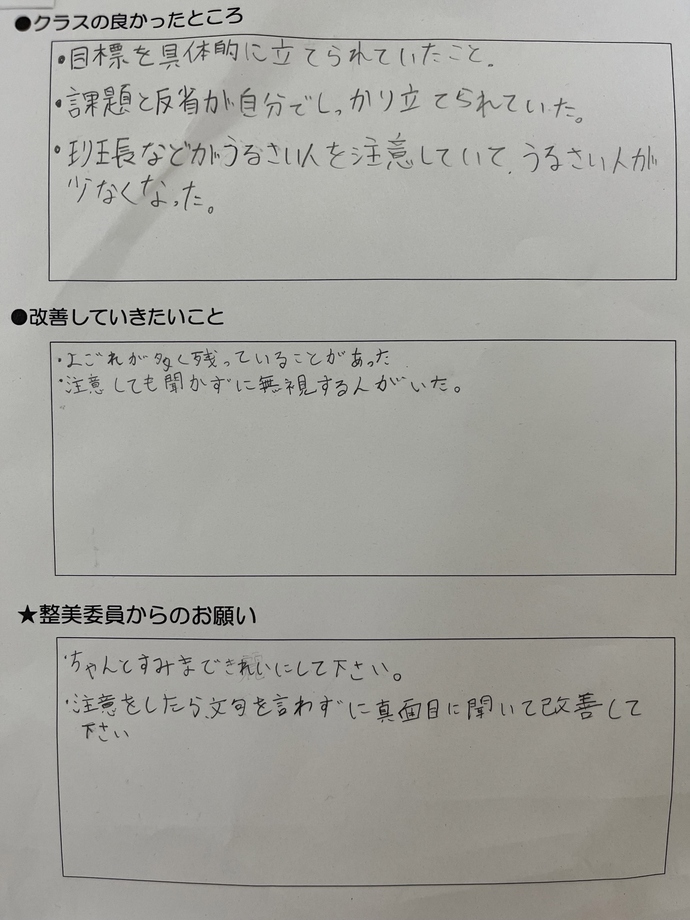 ●クラスの良かったところ
・目標を具体的に立てられていたこと.
・課題と反省が自分でしっかり立てられていた。
・班長などがうるさい人を注意していて、うるさい人が
少なくなった。
●改善していきたいこと
・よごれが多く残っていることがあった
・注意しても聞かずに無視する人がいた。
★整美委員からのお願い
・ちゃんとすみまできれいにして下さい。
・注意をしたら、文句を言わずに真面目に聞いて改善して
下さい